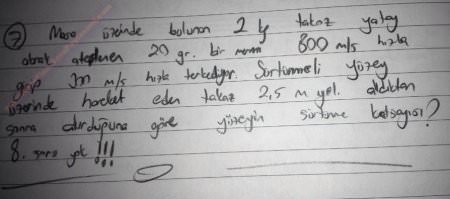 7) Masa üzeinde bulunan 2 kg takoz yatay
olarak ateşlenen 20 gr. bir mermi 800 m/s hızla
girip m/s hızla terkediyor. Sürtünmeli yüzey
üzerinde hareket eden takoz 2,5 m yol. aldıktan
sonra durduğuna göre yüzeyin sürtme katsayısı?
8. soru yok !!!